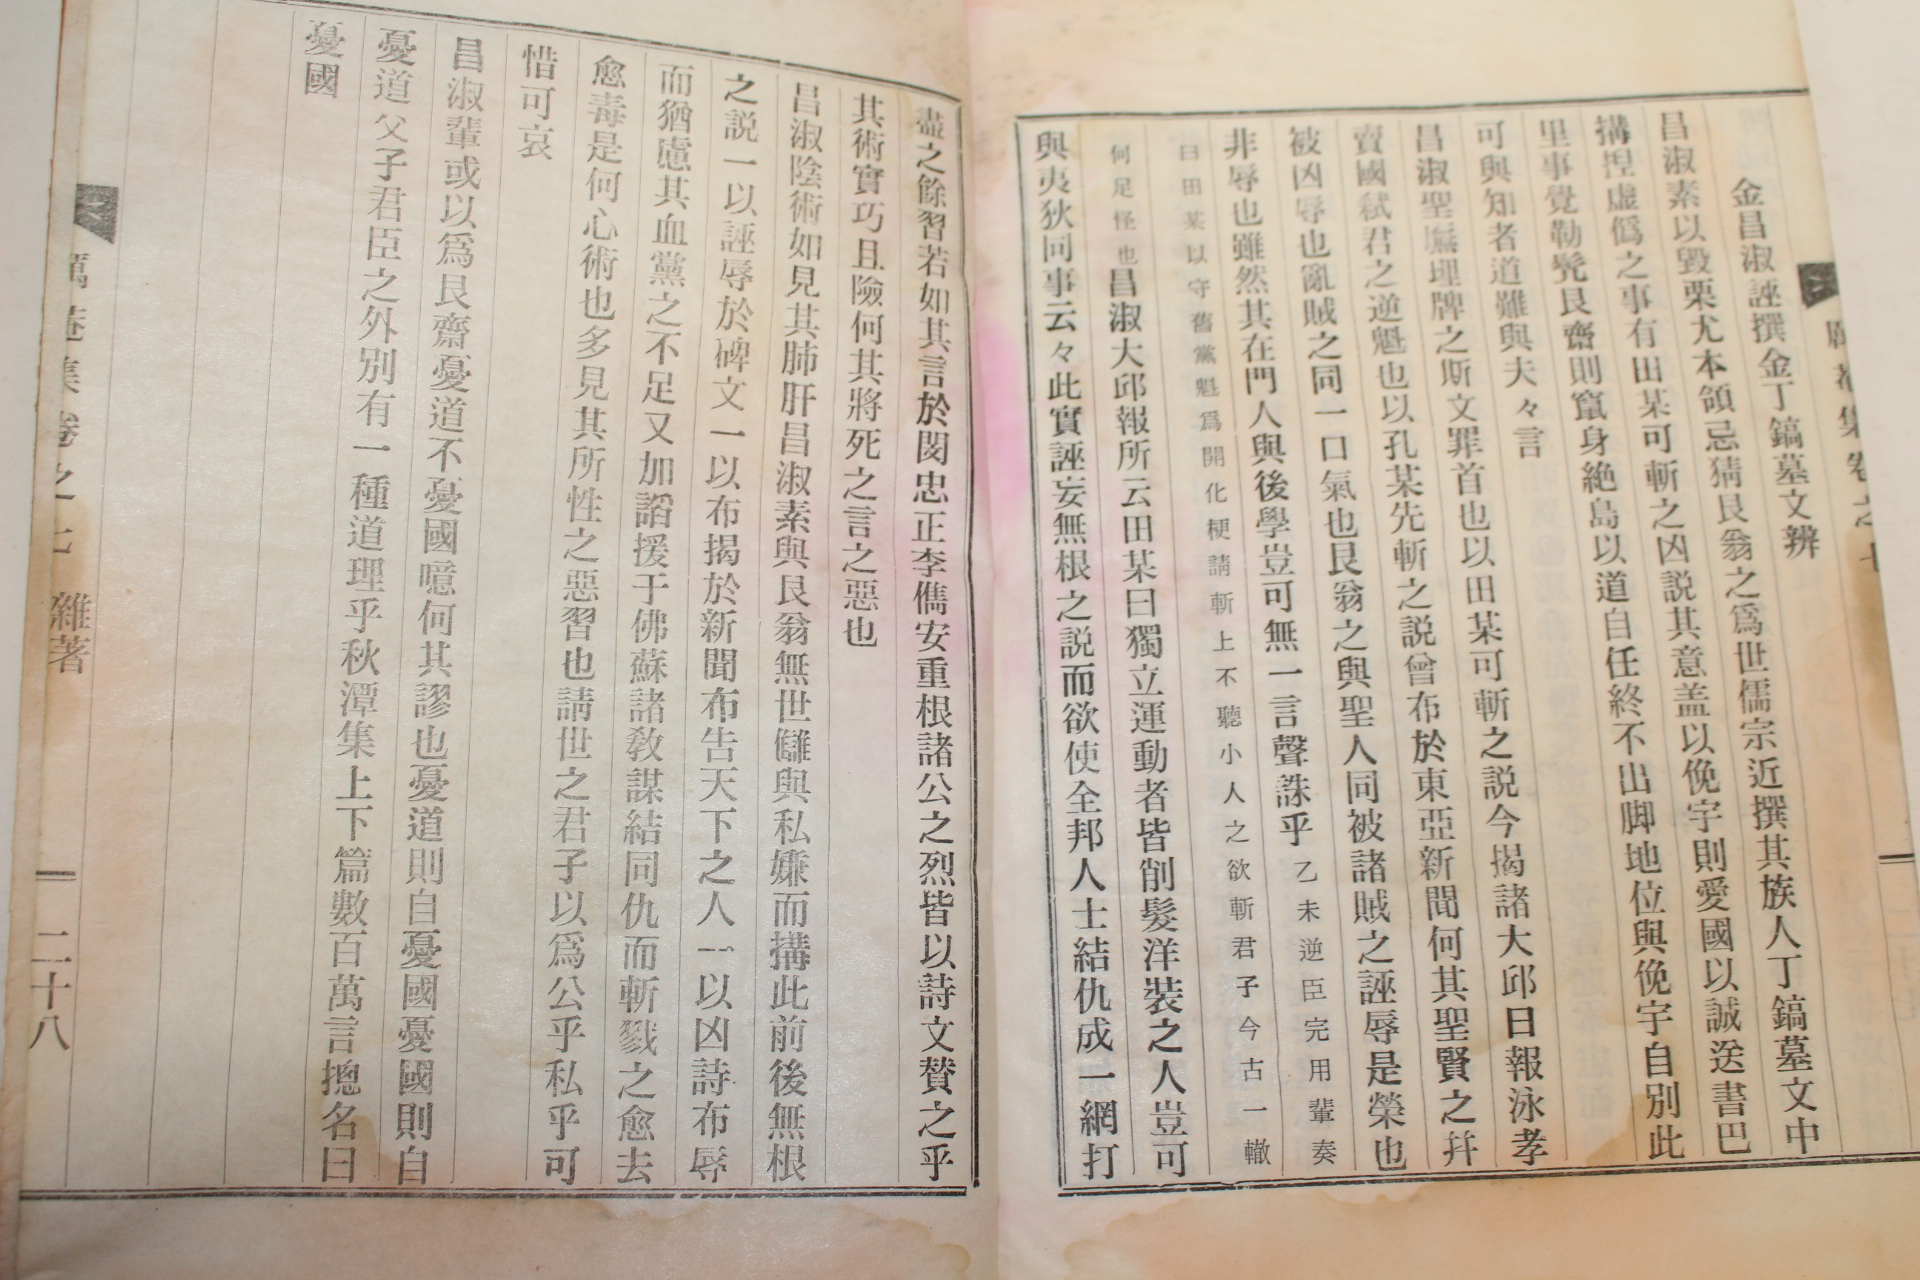 金昌淑誣撰金丁鎬墓文辨
昌淑素以毀栗尤本領忌猜艮翁之爲世儒宗近撰其族人丁鎬墓文中
搆捏虛僞之事有田某可斬之凶説其意盖以俛宇則愛國以誠送書巴
里事覺勒髠艮齋則竄身絶島以道自任終不出脚地位與俛宇自別此
可與知者道難與夫々言
昌淑聖廡埋牌之斯文罪首也以田某可斬之説今揭諸大邱日報泳孝
賣國弑君之逆魁也以孔某先斬之説曾布於東亞新聞何其聖賢之幷
被凶辱也亂賊之同一口氣也艮翁之與聖人同被諸賊之誣辱是榮也
非辱也雖然其在門人與後學豈可無一言聲誅乎乙未逆臣完用輩奏
曰田某以守舊黨魁爲開化梗請斬上不聽小人之欲斬君子今古一轍
何足怪也昌淑大邱報所云田某曰獨立運動者皆削髮洋裝之人豈可
與夷狄同事云々此實誣妄無根之説而欲使全邦人士結仇成一網打
盡之餘習若如其言於閔忠正李儁安重根諸公之烈皆以詩文贊之乎
其術實巧且險何其將死之言之惡也
昌淑陰術如見其肺肝昌淑素與艮翁無世讎與私嫌而搆此前後無根
之説一以誣辱於碑文一以布揭於新聞布告天下之人一以凶詩布辱
而猶慮其血黨之不足又加謟援于佛蘇諸敎謀結同仇而斬戮之愈去
愈毒是何心術也多見其所性之惡習也請世之君子以爲公乎私乎可
惜可哀
昌淑輩或以爲艮齋憂道不憂國噫何其謬也憂道則自憂國憂國則自
憂道父子君臣之外別有一種道理乎秋潭集上下篇數百萬言摠名曰
憂國
菴集卷之七 雜著
二十八